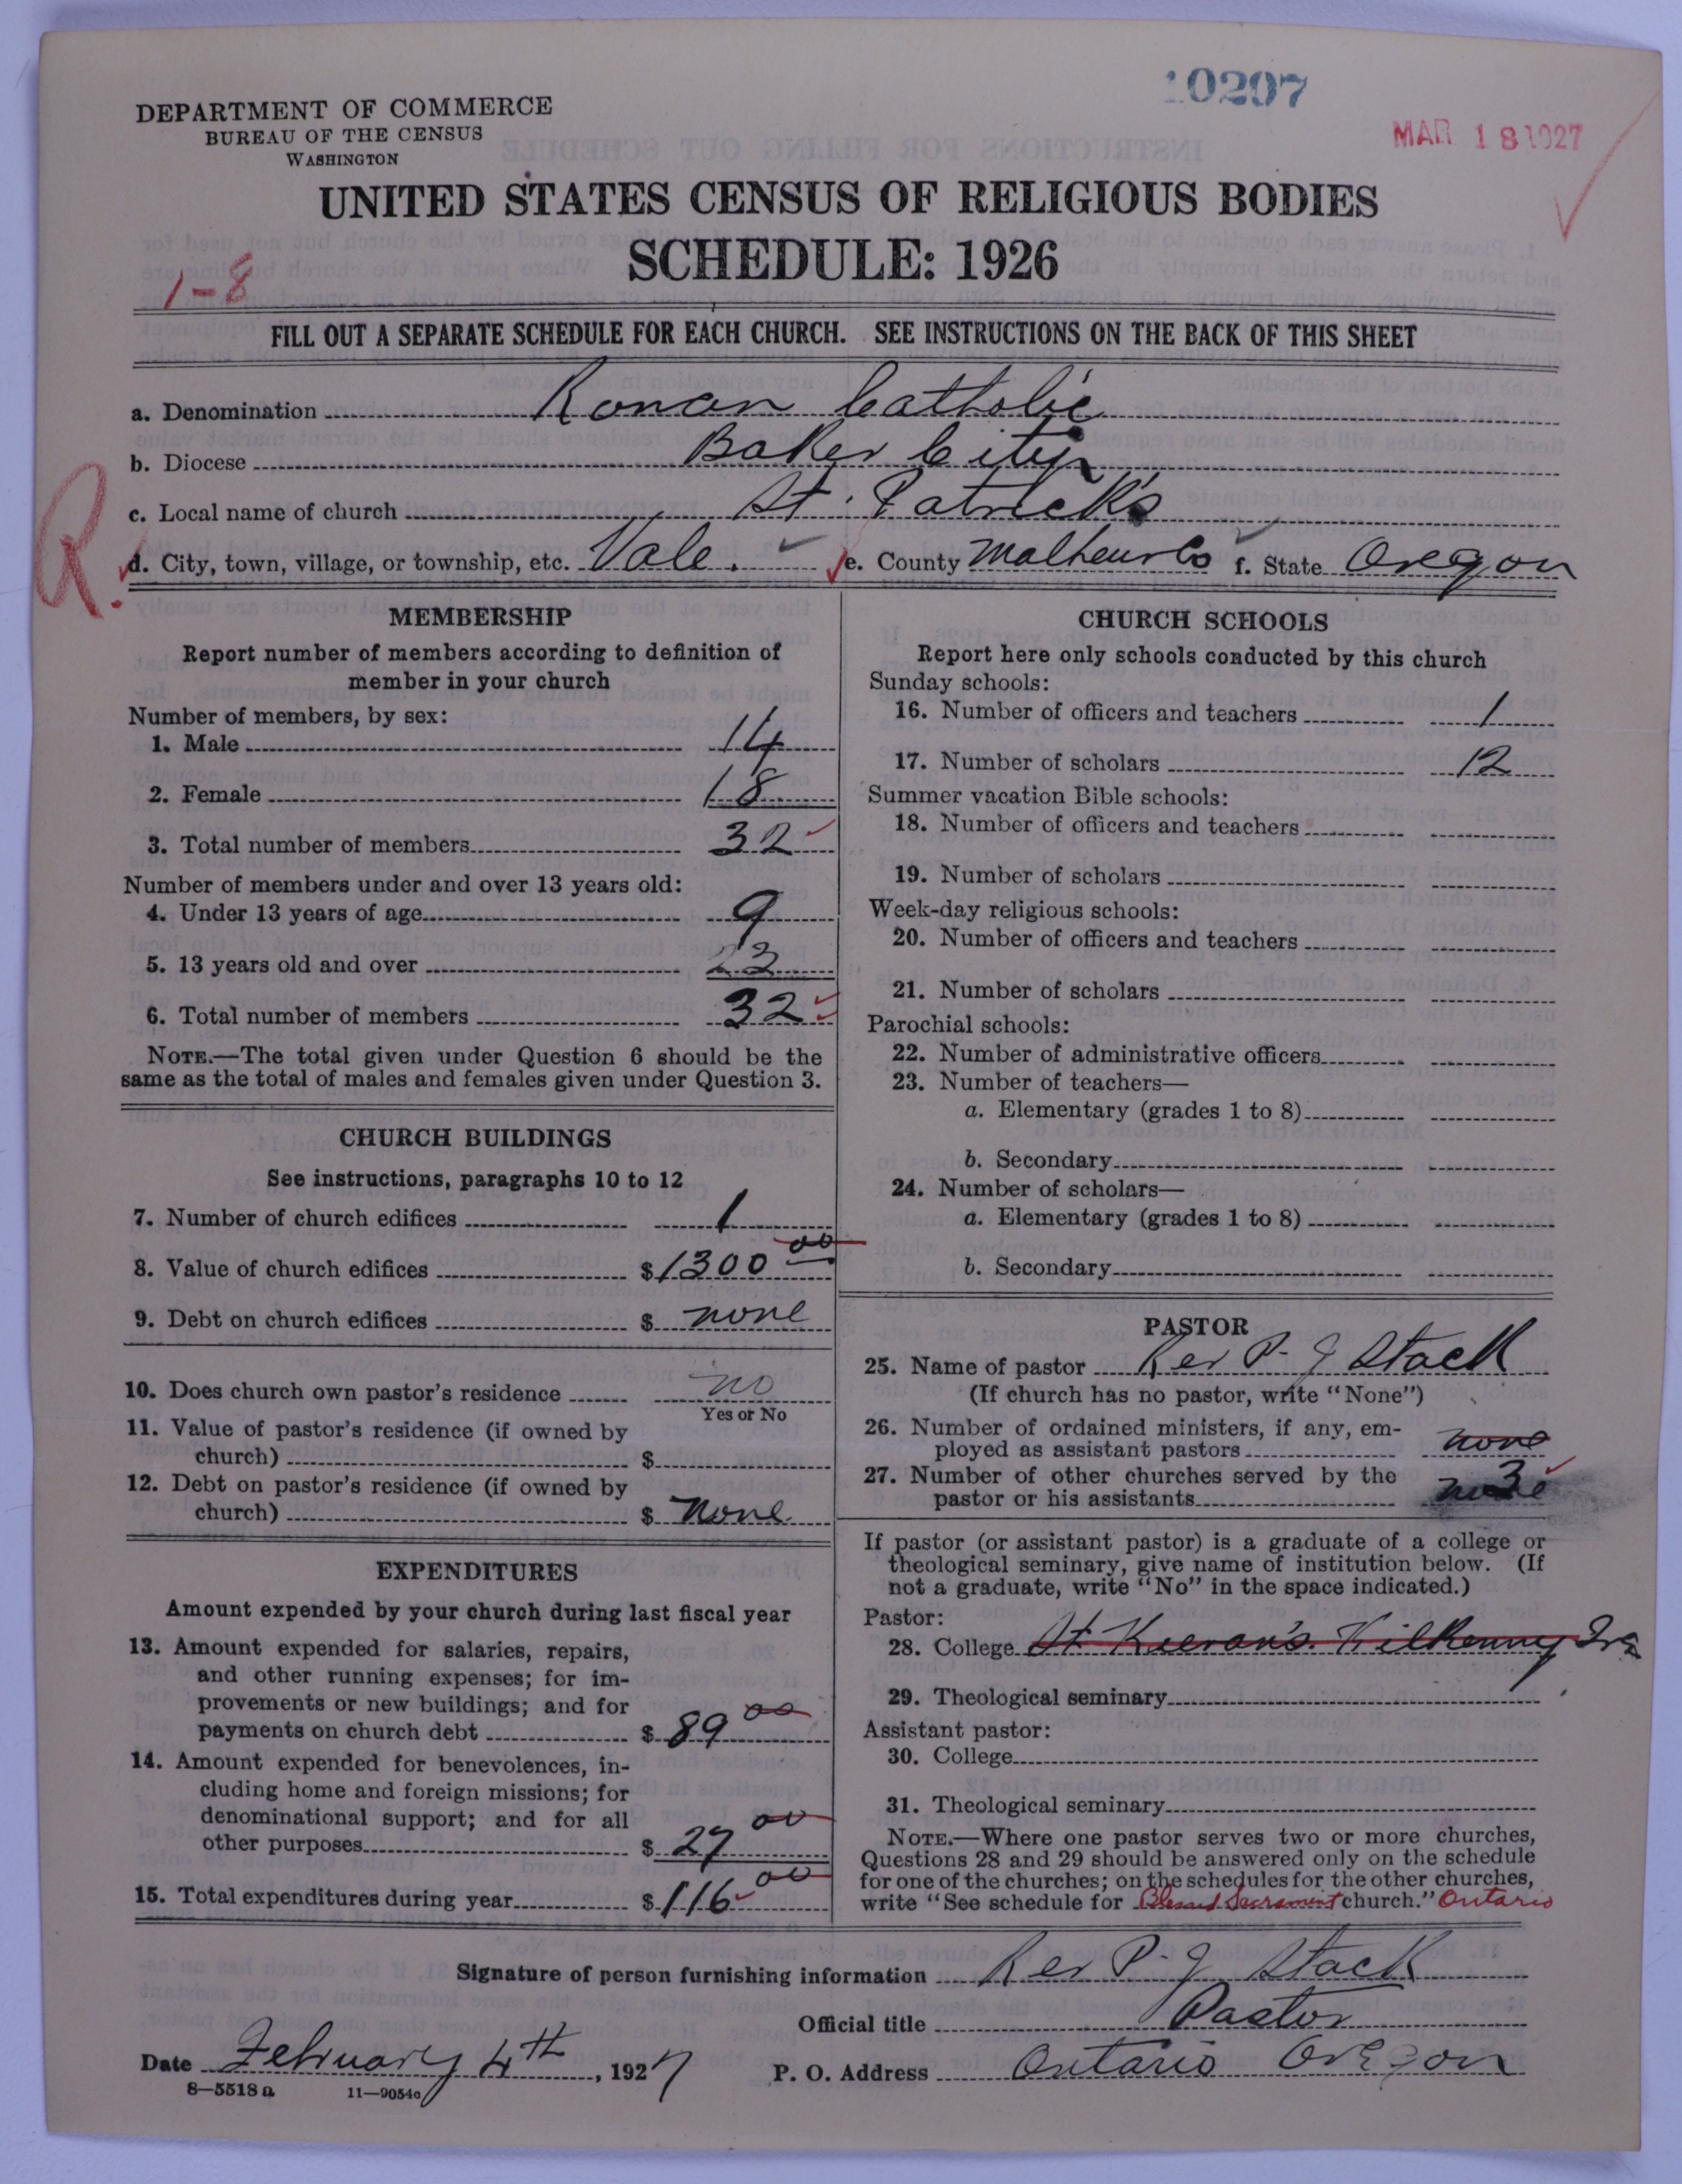 10297
MAR 18 1927
DEPARTMENT OF COMMERCE
BUREAU OF THE CENSUS
WASHINGTON
UNITED STATES CENSUS OF RELIGIOUS BODIES
SCHEDULE: 1926
1-8
FILL OUT A SEPARATE SCHEDULE FOR EACH CHURCH. SEE INSTRUCTIONS ON THE BACK OF THIS SHEET
a. Denomination Roman Catholic
b. Diocese Baker City
c. Local name of church St. Patrick's
R.
d. City, town, village, or township, etc. Vale. e. County Malheur Co f. State Oregon
MEMBERSHIP
Report number of members according to definition of
member in your church
Number of members, by sex:
1. Male 14
2. Female 18
3. Total number of members 32
Number of members under and over 13 years old:
4. Under 13 years of age 9
5. 13 years old and over 23
6. Total number of members 32
NOTE.—The total given under Question 6 should be the
same as the total of males and females given under Question 3.
CHURCH BUILDINGS
See instructions, paragraphs 10 to 12
7. Number of church edifices 1
8. Value of church edifices $1300 00
9. Debt on church edifices $ none
10. Does church own pastor's residence no
Yes or No
11. Value of pastor's residence (if owned by
church) $
12. Debt on pastor's residence (if owned by
church) $ None
EXPENDITURES
Amount expended by your church during last fiscal year
13. Amount expended for salaries, repairs,
and other running expenses; for im-
provements or new buildings; and for
payments on church debt $ 89 00
14. Amount expended for benevolences, in-
cluding home and foreign missions; for
denominational support; and for all
other purposes $ 27 00
15. Total expenditures during year $ 116 00
CHURCH SCHOOLS
Report here only schools conducted by this church
Sunday schools:
16. Number of officers and teachers 1
17. Number of scholars 12
Summer vacation Bible schools:
18. Number of officers and teachers
19. Number of scholars
Week-day religious schools:
20. Number of officers and teachers
21. Number of scholars
Parochial schools:
22. Number of administrative officers
23. Number of teachers—
a. Elementary (grades 1 to 8)
b. Secondary
24. Number of scholars—
a. Elementary (grades 1 to 8)
b. Secondary
PASTOR
25. Name of pastor Rev P. J Stack
(If church has no pastor, write "None")
26. Number of ordained ministers, if any, em-
ployed as assistant pastors none
27. Number of other churches served by the
pastor or his assistants 3
If pastor (or assistant pastor) is a graduate of a college or
theological seminary, give name of institution below. (If
not a graduate, write "No" in the space indicated.)
Pastor:
28. College St Kieran's. Kilkenny Ire
29. Theological seminary
Assistant pastor:
30. College
31. Theological seminary
NOTE.—Where one pastor serves two or more churches,
Questions 28 and 29 should be answered only on the schedule
for one of the churches; on the schedules for the other churches,
write "See schedule for Blessed Sacrament church." Ontario
Signature of person furnishing information Rev P. J Stack
Official title Pastor
Date February 4th, 1927 P. O. Address Ontario Oregon
8—5518 a 11—9054a